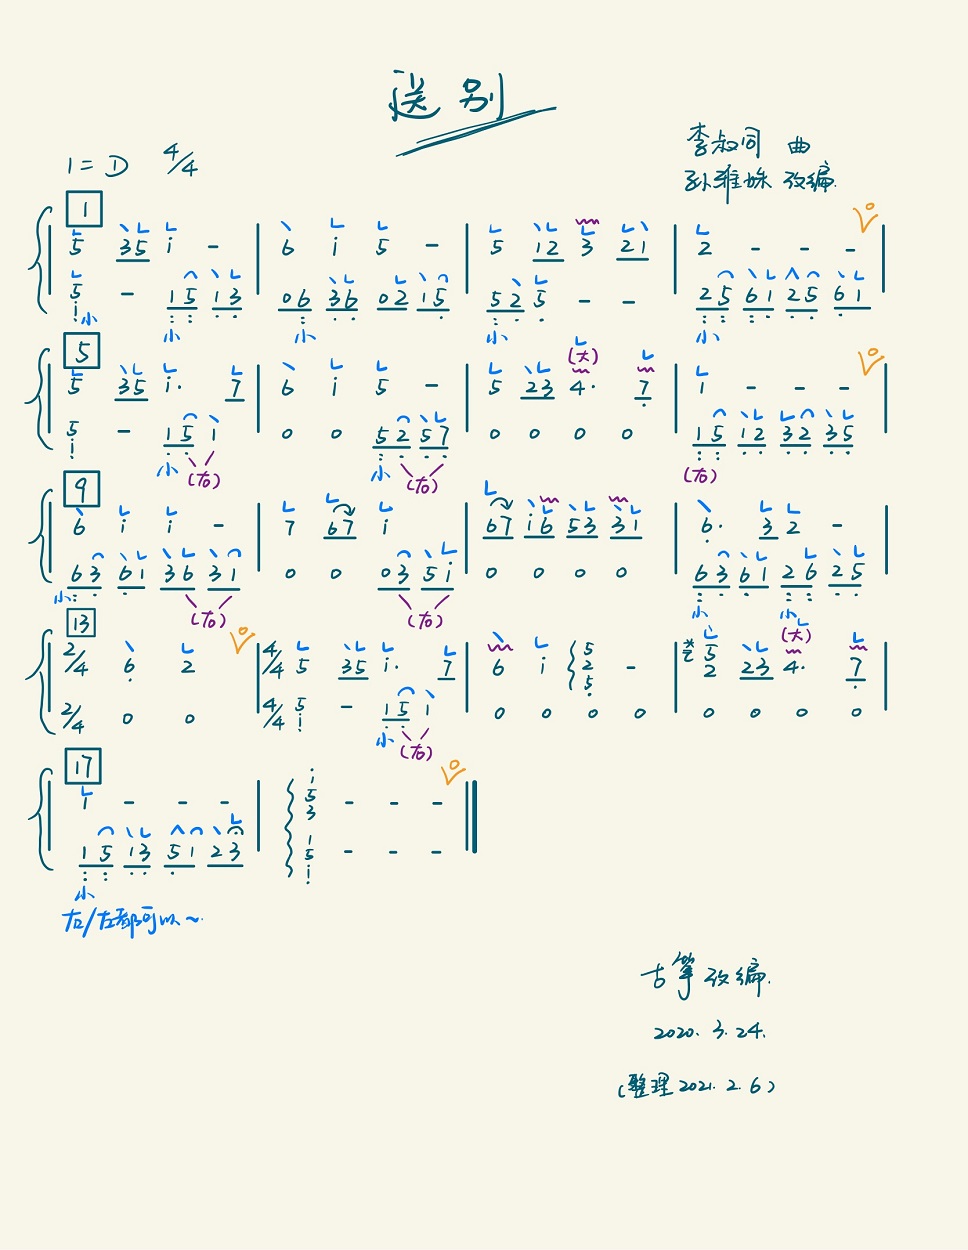 送别
1=D 4/4
李叔同 曲
孙雅姝 改编.
1
5 35 i - | 6 i 5 - | 5 12 3 21 | 2 - - - |
5 - 15 13 | 06 36 02 15 | 52 5 - - | 25 61 25 61 |
小 小 小 小
5
(大)
5 35 i· 7 | 6 i 5 - | 5 23 4· 7 | 1 - - - |
5 - 15 1 | 0 0 52 57 | 0 0 0 0 | 15 12 32 35 |
小 (右) 小 (右) (右)
9
6 i i - | 7 67 i | 67 i6 53 31 | 6· 32 - |
63 61 36 31 | 0 0 03 5i | 0 0 0 0 | 63 61 26 25 |
小 (右) (右) 小 小
13
(大)
2/4 6 2 | 4/4 5 35 i· 7 | 6 i 5 2 5 - | 5 2 23 4· 7 |
2/4 0 0 | 4/4 5 - 15 1 | 0 0 0 0 | 0 0 0 0 |
小 (右)
17
1 - - - | i 5 3 - - - |
15 13 51 23 | 1 5 1 - - - |
小
右/左都可以~
古筝改编.
2020. 3. 24.
(整理 2021. 2. 6)